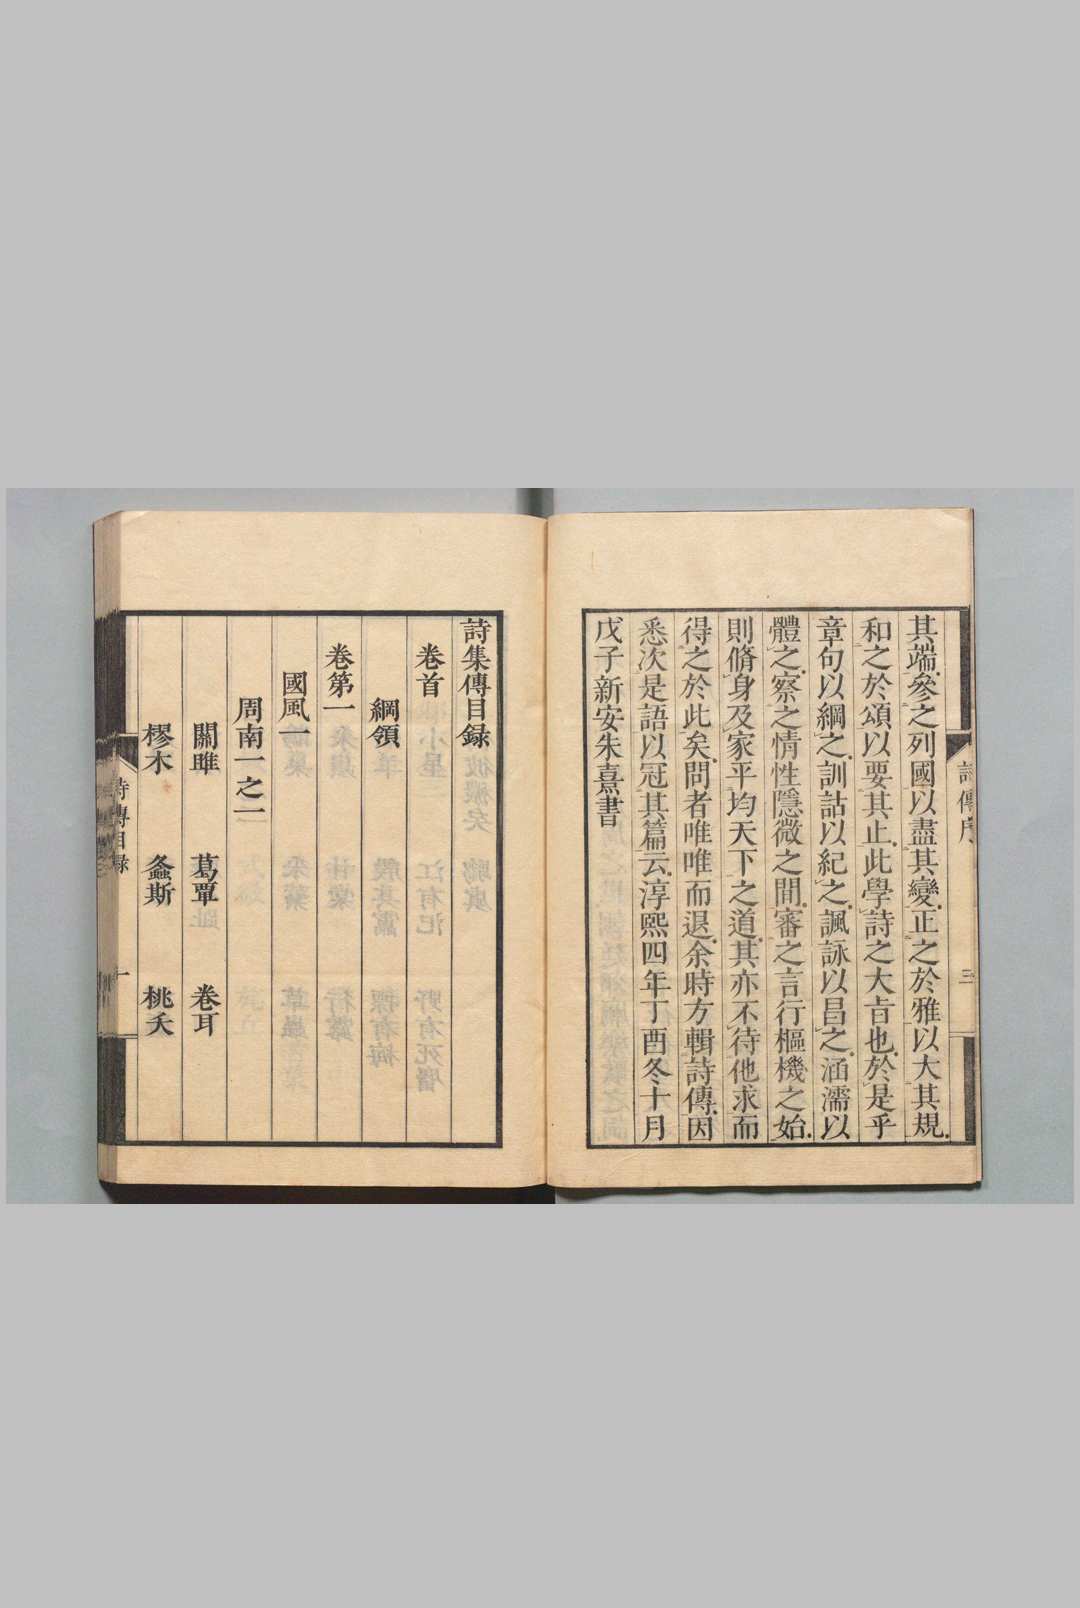 其端參之列國以盡其變正之於雅以大其規
和之於頌以要其止此學詩之大㫖也於是乎
章句以綱之訓詁以紀之諷詠以昌之涵濡以
體之察之情性隱微之間審之言行樞機之始
則脩身及家平均天下之道其亦不待他求而
得之於此矣問者唯唯而退余時方輯詩傳因
悉次是語以冠其篇云淳熙四年丁酉冬十月
戊子新安朱熹書
詩傳序
三
詩集傳目録
卷首
綱領
卷第一
國風一
周南一之一
關雎 葛覃 卷耳
樛木 螽斯 桃夭
詩傳目録
一